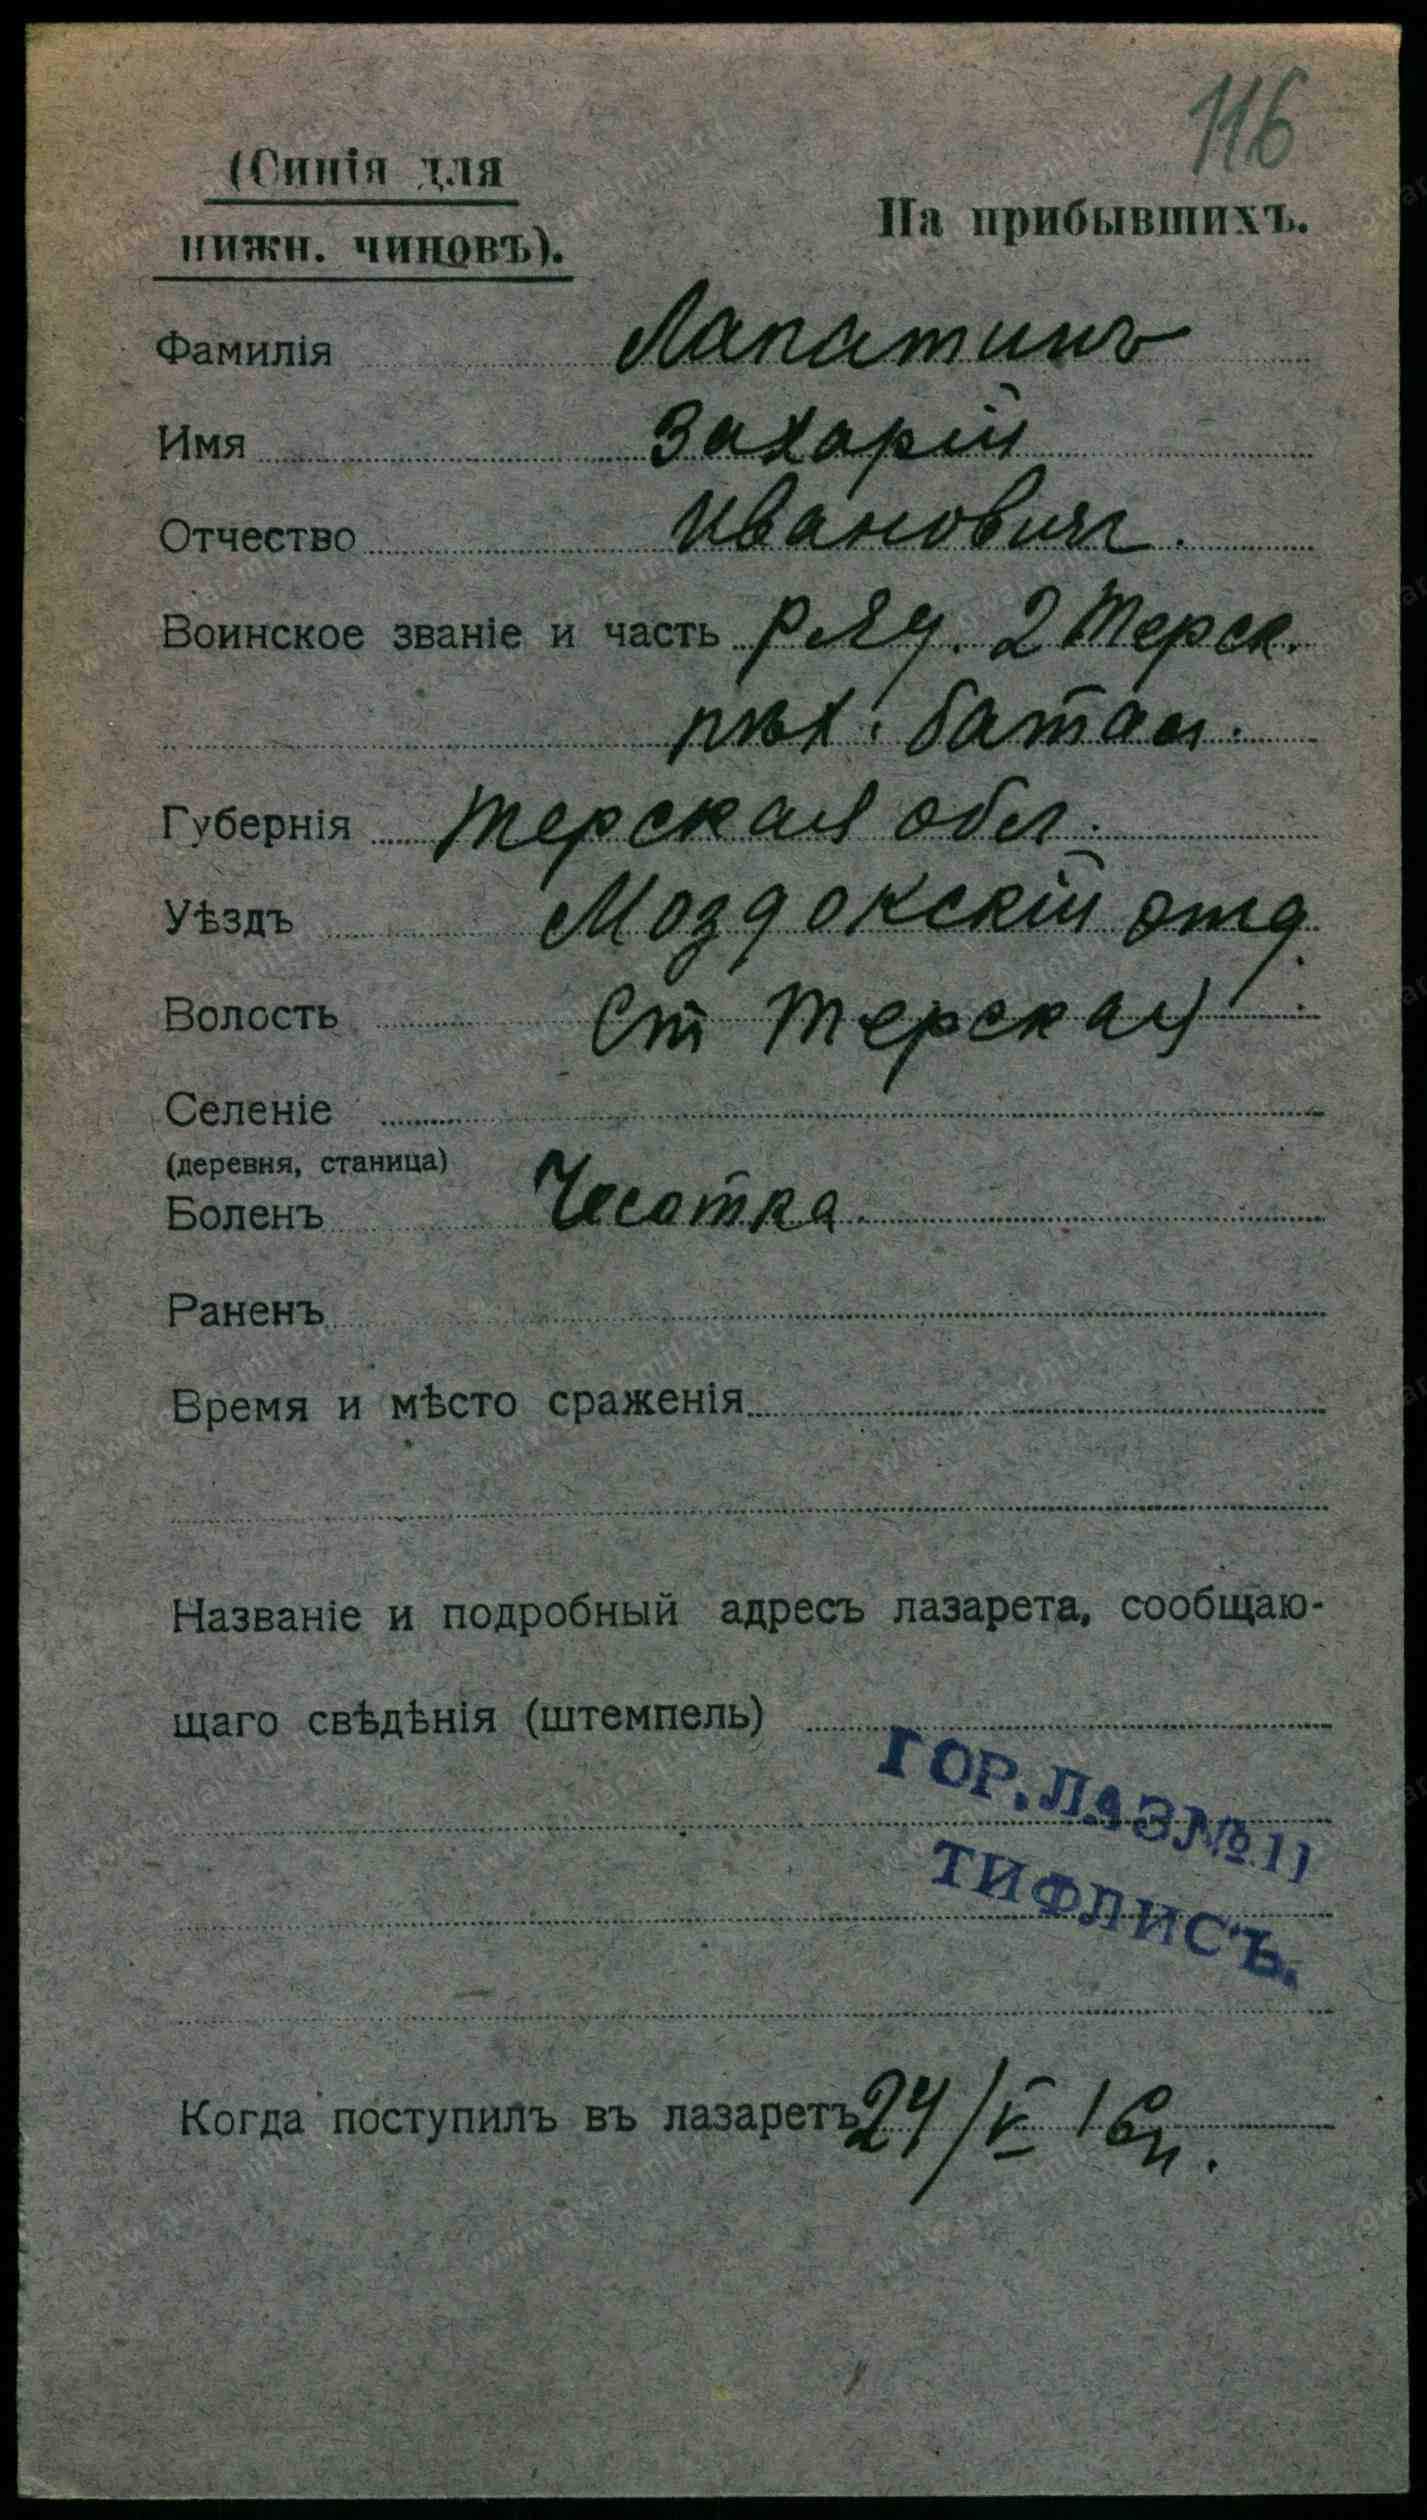 116
(Синія для
нижн. чиновъ).
На прибывшихъ.
Фамилія Лапатинъ
Имя Захарій
Отчество Ивановичъ.
Воинское званіе и часть ряд. 2 Терск.
пѣх. батал.
Губернія Терская обл.
Уѣздъ Моздокскій отд.
Волость Ст Терская
Селеніе
(деревня, станица)
Боленъ Чесотка
Раненъ
Время и мѣсто сраженія
Названіе и подробный адресъ лазарета, сообщаю-
щаго свѣдѣнія (штемпель)
ГОР. ЛАЗ № 11
ТИФЛИСЪ.
Когда поступилъ въ лазаретъ 24/V 16 г.